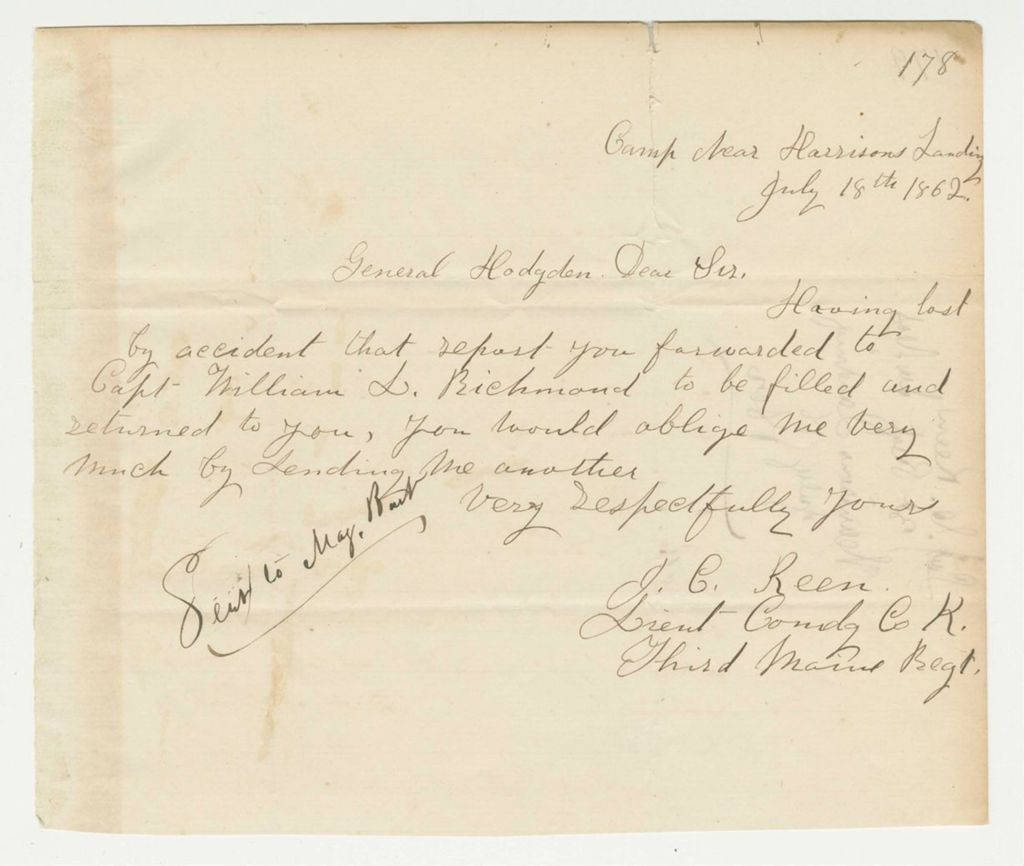 178
Camp Near Harrisons Landing
July 18th 1862.
General Hodgden. Dear Sir.
Having lost
by accident that report you forwarded to
Capt William L. Richmond to be filled and
returned to you, you would oblige me very
much by sending me another
very respectfully yours
J. C. Keen.
Lieut Comdg Co K.
Third Maine Regt.
Sent to Maj. Burt